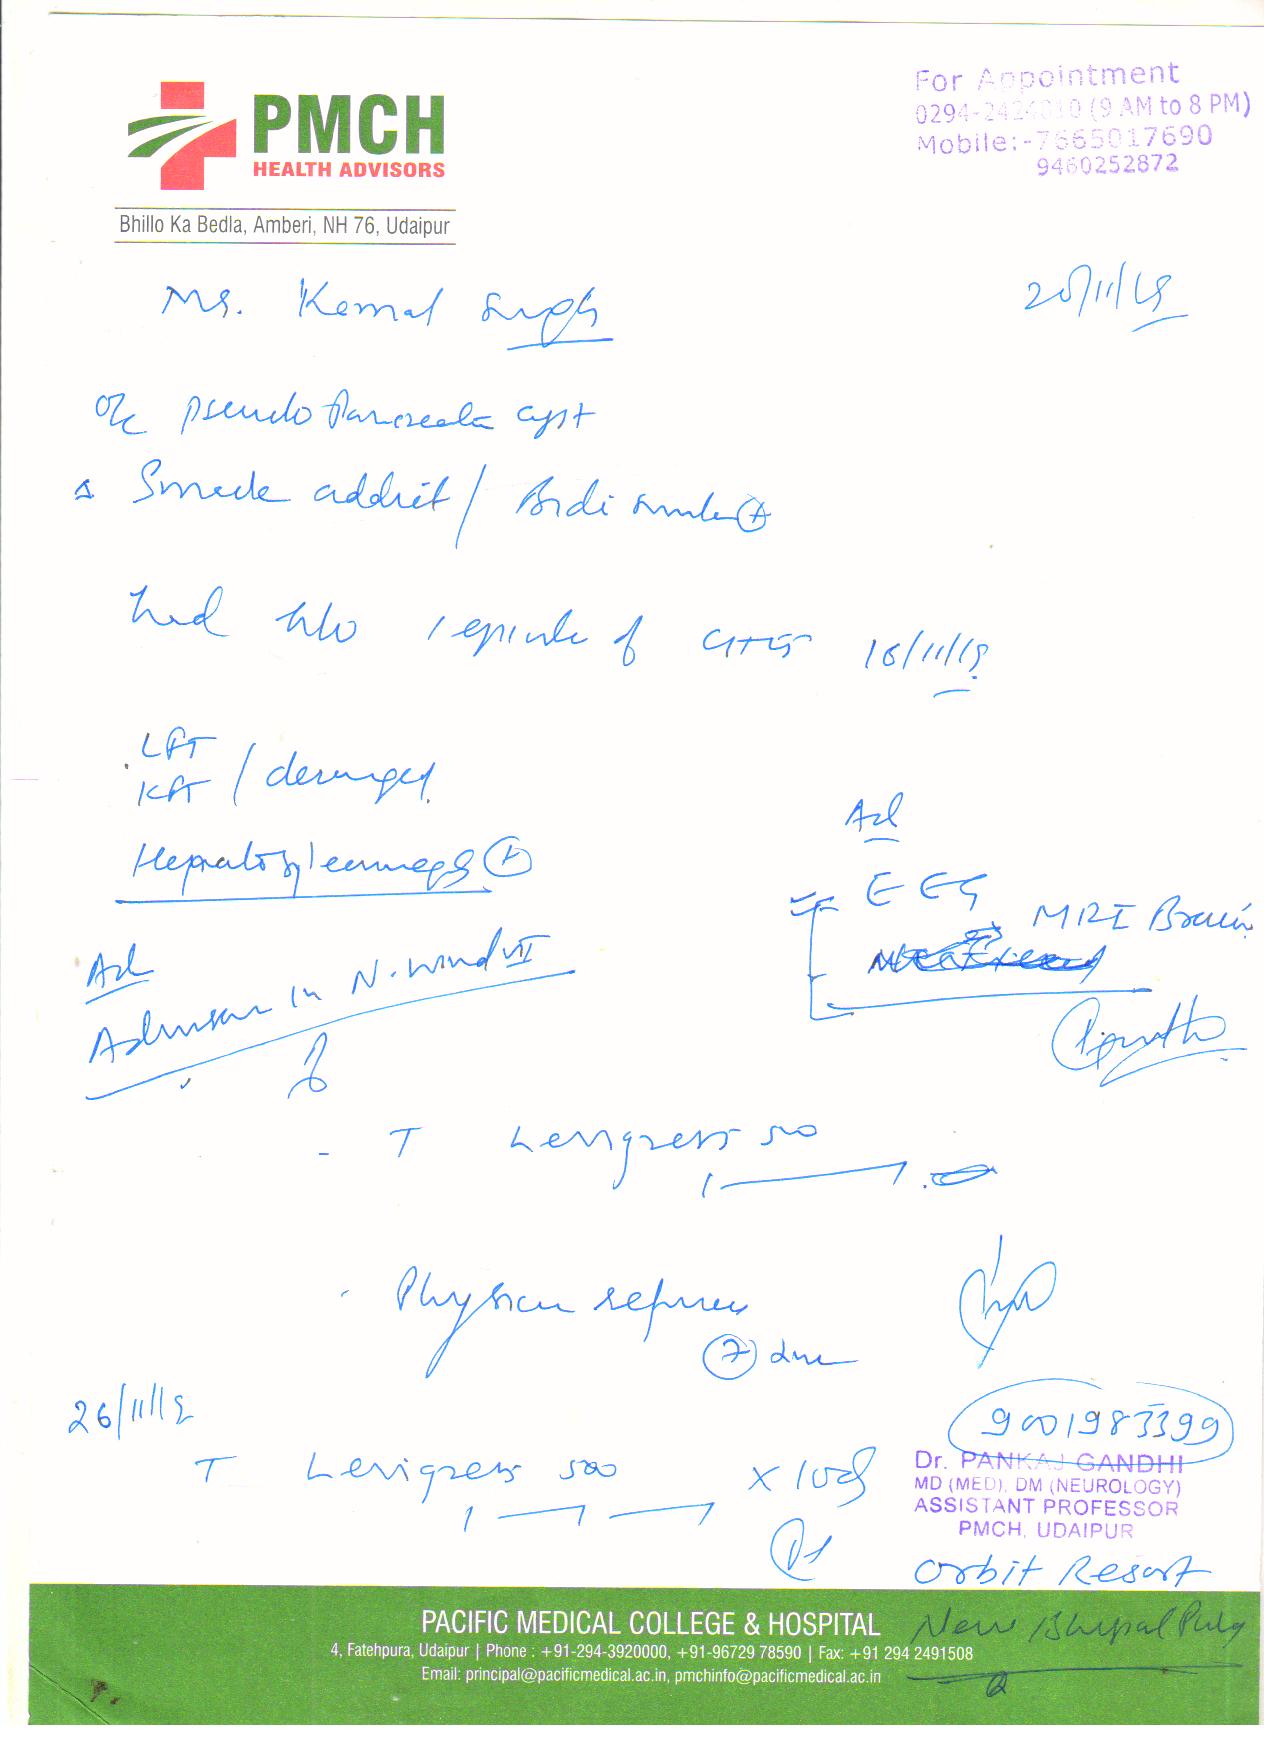 PMCH
HEALTH ADVISORS
Bhillo Ka Bedla, Amberi, NH 76, Udaipur
For Appointment
0294-2424010 (9 AM to 8 PM)
Mobile:-7665017690
9460252872
Singh
pseudo Pancreatic cyst
Smack addict / Bidi smoker (+)
had h/o 1 episode of GTCS
LFT
KFT / deranged
Hepatosplenomegaly (+)
Ad
EEG
MRI Brain
Ad
Admission in N. ward VII
T 500
Physician
26/11/15
T 500 x 10d
9001983399
Dr. PANKAJ GANDHI
MD (MED), DM (NEUROLOGY)
ASSISTANT PROFESSOR
PMCH, UDAIPUR
Orbit Resort
New
PACIFIC MEDICAL COLLEGE & HOSPITAL
4, Fatehpura, Udaipur | Phone : +91-294-3920000, +91-96729 78590 | Fax: +91 294 2491508
Email: principal@pacificmedical.ac.in, pmchinfo@pacificmedical.ac.in